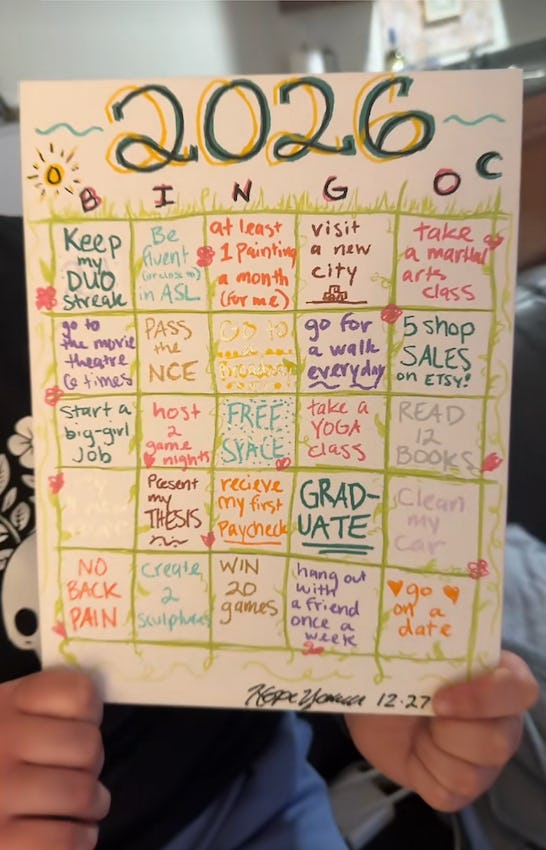 2026
B I N G O C
Keep
my
DUO
streak
Be
fluent
(or close to)
in ASL
at least
1 Painting
a month
(for me)
visit
a new
city
take
a martial
arts
class
go to
the movie
theatre
6 times
PASS
the
NCE
GO to
Broadway
go for
a walk
everyday
5 shop
SALES
on ETSY!
start a
big-girl
job
host
2
game
nights
FREE
SPACE
take a
YOGA
class
READ
12
BOOKS
Present
my
THESIS
recieve
my first
Paycheck
GRAD-
UATE
Clean
my
car
NO
BACK
PAIN
Create
2
sculptures
WIN
20
games
hang out
with
a friend
once a
week
go
on a
date
12.27